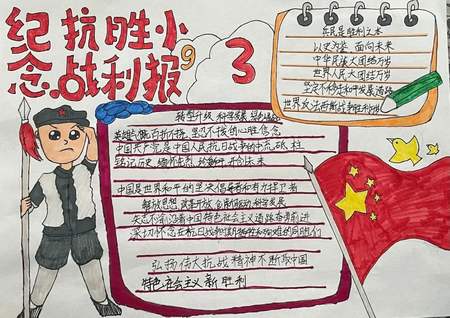 纪念抗战胜利小报
9
3
兵民是胜利之本
以史为鉴 面向未来
中华民族大团结万岁
世界人民大团结万岁
坚定不移走和平发展道路
世界反法西斯战争胜利
转型升级 科学发展
英雄气魄百折不挠 坚忍不拔的必胜信念
中国共产党是中国人民抗日战争的中流砥柱
铭记历史 缅怀先烈 珍爱和平 开创未来
中国是世界和平的坚决倡导者和有力捍卫者
解放思想 改革开放 科学发展
矢志不渝沿着中国特色社会主义道路奋勇前进
深切怀念在抗日战争中牺牲的同胞们
弘扬伟大抗战精神不断取中国
特色社会主义新胜利